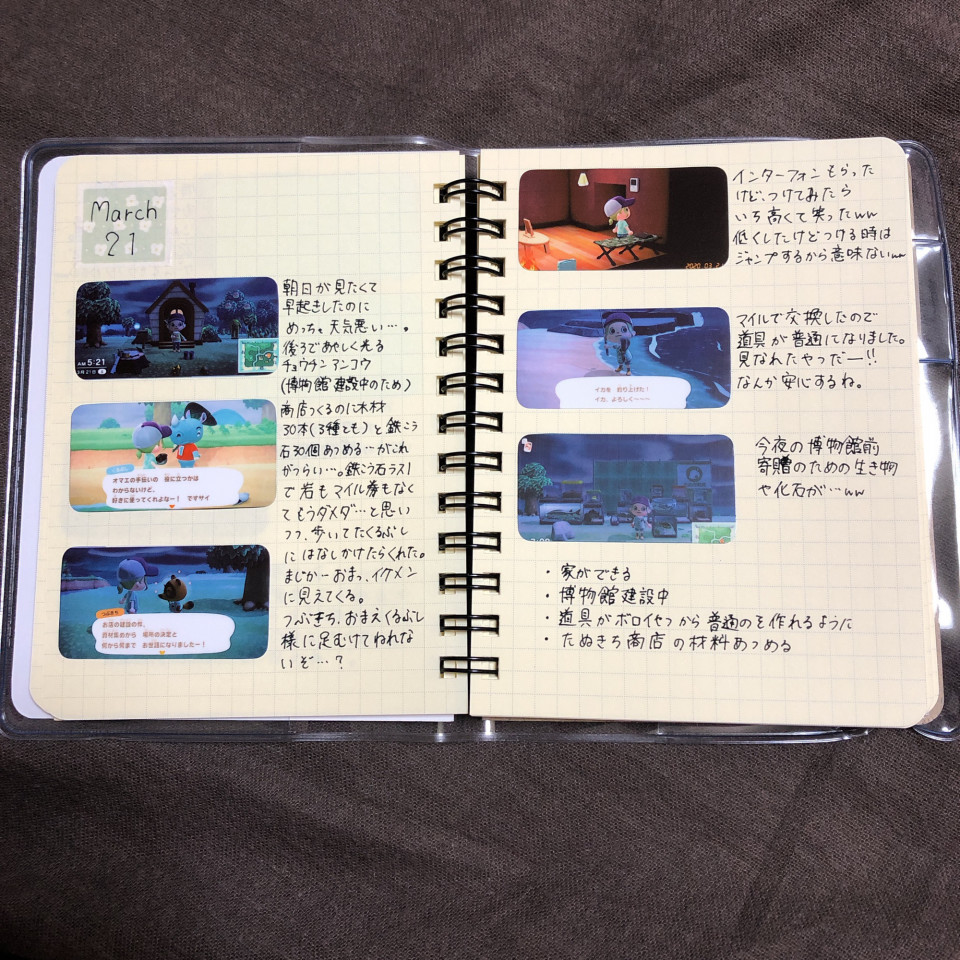 March
21
AM 5:21
3月21日
朝日が見たくて
早起きしたのに
めっちゃ天気悪い…。
後ろであやしく光る
チョウチンアンコウ
(博物館建設中のため)
オマエの手伝いの 役に立つかは
わからないけど、
好きに使ってくれよなー! でマサイ
商店つくるのに木材
30本(3種とも)と鉄こう
石30個あつめる…がこれ
がつらい…。鉄こう石ラス1
で岩もマイル券もなく
てもうダメダ…と思い
つつ、歩いてたくるぶし
にはなしかけたらくれた。
まじかーおまっ、イケメン
に見えてくる。
つぶきち、おまえくるぶし
様に足むけてねれな
いぞ…?
つぶきち
お店の建設の件、
資材集めから 場所の決定と
何から何まで お世話になりましたー!
2020.03.2
インターフォンもらった
けど、つけてみたら
いち高くて笑ったww
低くしたけどつける時は
ジャンプするから意味ないww
イカを 釣り上げた!
イカ、よろしく〜〜〜
マイルで交換したので
道具が普通になりました。
見なれたやつだー!!
なんか安心するね。
今夜の博物館前
寄贈のための生き物
や化石が…ww
・家ができる
・博物館建設中
・道具がボロイセつから普通のを作れるように
・たぬきち商店の材料あつめる